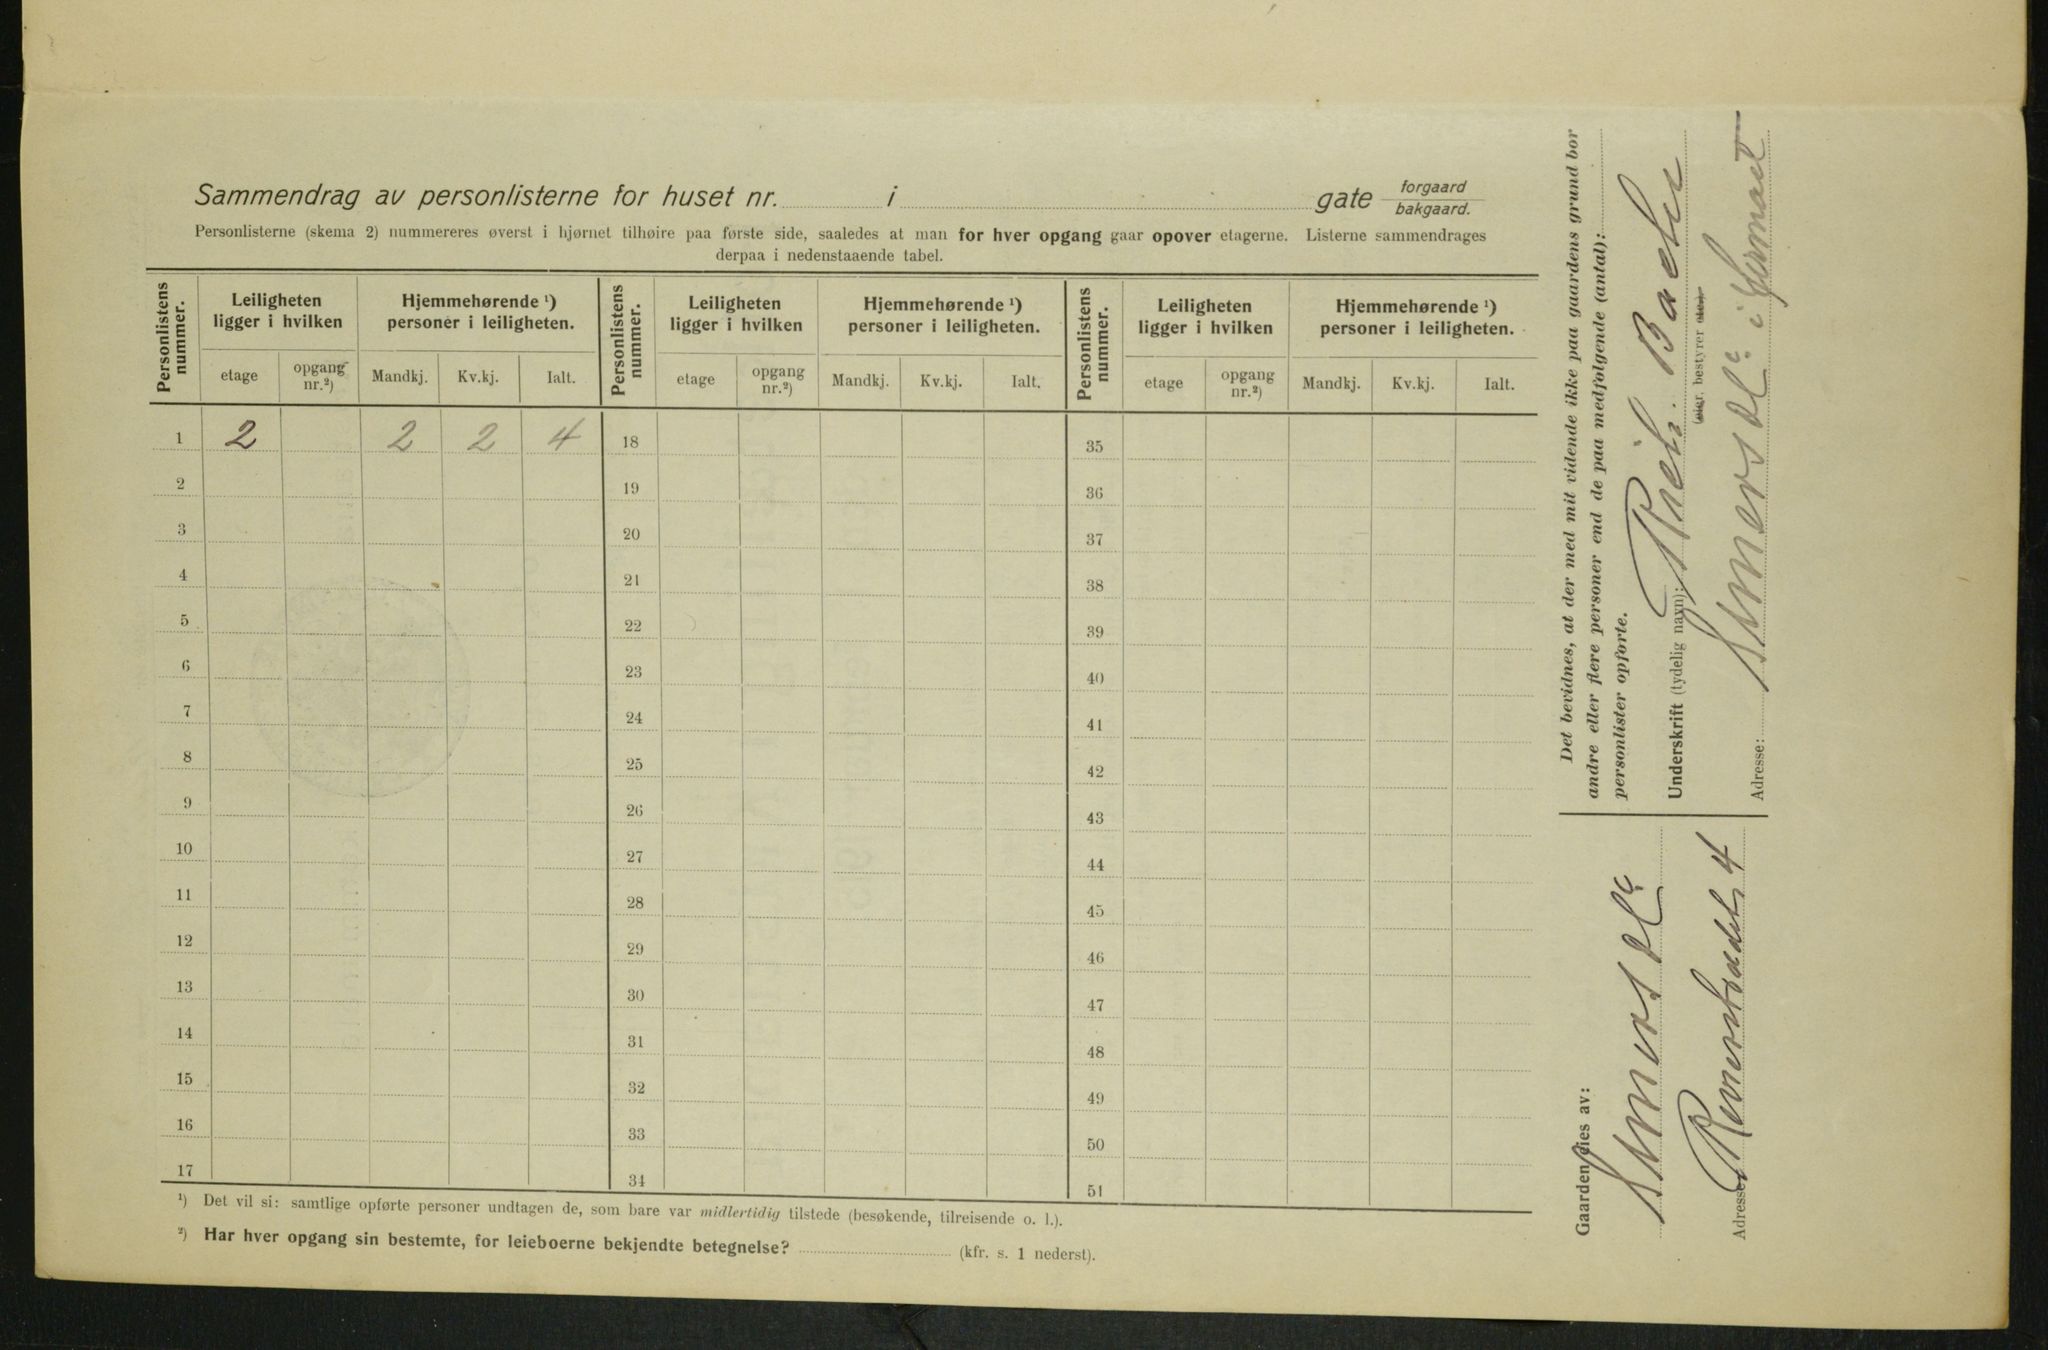 Sammendrag av personlisterne for huset nr. i gate forgaard bakgaard.
Personlisterne (skema 2) nummereres øverst i hjørnet tilhøire paa første side, saaledes at man for hver opgang gaar opover etagerne. Listerne sammendrages
derpaa i nedenstaaende tabel.
Personlistens nummer. Leiligheten ligger i hvilken Hjemmehørende ¹) personer i leiligheten. Personlistens nummer. Leiligheten ligger i hvilken Hjemmehørende ¹) personer i leiligheten. Personlistens nummer. Leiligheten ligger i hvilken Hjemmehørende ¹) personer i leiligheten.
etage opgang nr.²) Mandkj. Kv.kj. Ialt. etage opgang nr.²) Mandkj. Kv.kj. Ialt. etage opgang nr.²) Mandkj. Kv.kj. Ialt.
1 2 2 2 4 18 35
2 19 36
3 20 37
4 21 38
5 22 39
6 23 40
7 24 41
8 25 42
9 26 43
10 27 44
11 28 45
12 29 46
13 30 47
14 31 48
15 32 49
16 33 50
17 34 51
¹) Det vil si: samtlige opførte personer undtagen de, som bare var midlertidig tilstede (besøkende, tilreisende o. l.).
²) Har hver opgang sin bestemte, for leieboerne bekjendte betegnelse? (kfr. s. 1 nederst).
Gaarden eies av:
Adresse: 4
Det bevidnes, at der med mit vidende ikke paa gaardens grund bor
andre eller flere personer end de paa medfølgende (antal):
personlister opførte.
Underskrift (tydelig navn):
(eier. bestyrer etc.)
Adresse: i